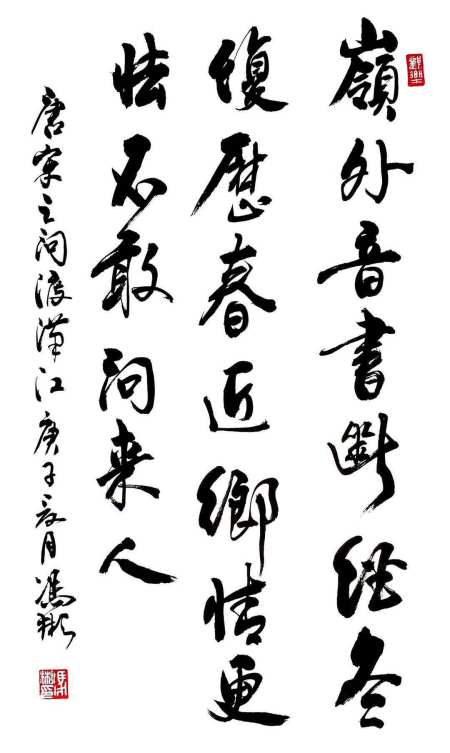 嶺外音書斷經冬
復歷春近鄉情更
怯不敢問来人
唐宋之問渡漢江庚子夏月馮彬